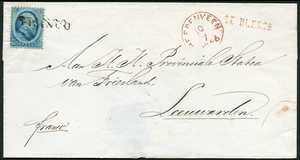 FRANCO
HEERENVEEN
DE BLESSE
Aan H.H. Provinciale Staten
van Friesland
Leeuwarden
franco